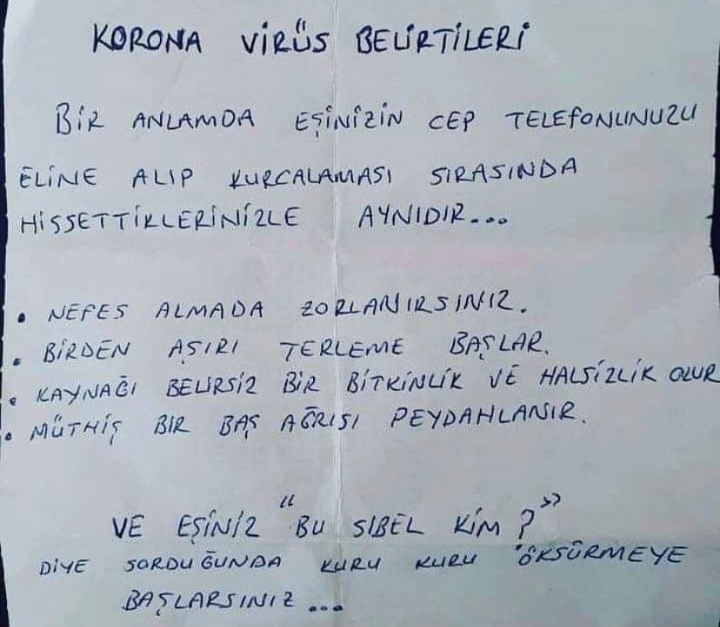 KORONA VİRÜS BELİRTİLERİ
BİR ANLAMDA EŞİNİZİN CEP TELEFONUNUZU
ELİNE ALIP KURCALAMASI SIRASINDA
HİSSETTİKLERİNİZLE AYNIDIR...
• NEFES ALMADA ZORLANIRSINIZ.
• BİRDEN AŞIRI TERLEME BAŞLAR.
• KAYNAĞI BELİRSİZ BİR BİTKİNLİK VE HALSİZLİK OLUR
• MÜTHİŞ BİR BAŞ AĞRISI PEYDAHLANIR.
VE EŞİNİZ "BU SİBEL KİM?"
DİYE SORDUĞUNDA KURU KURU ÖKSÜRMEYE
BAŞLARSINIZ...